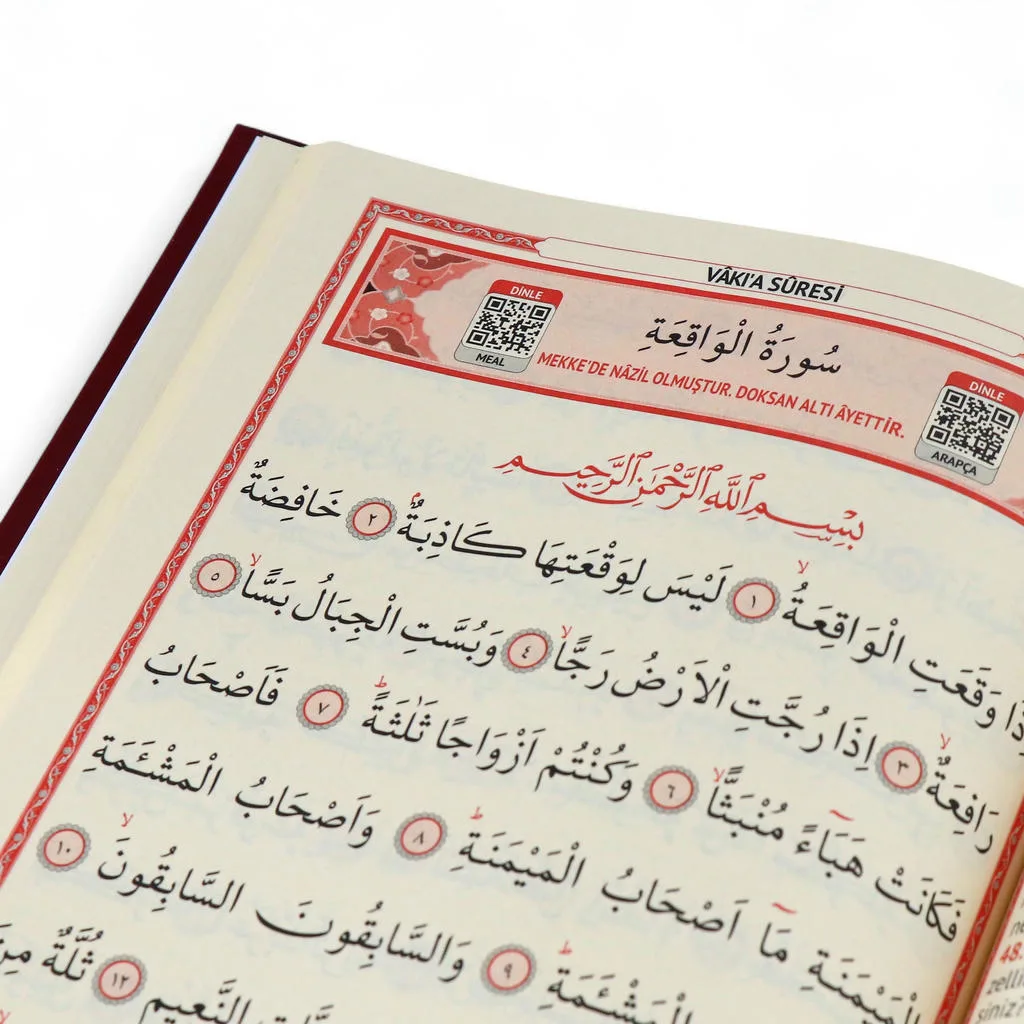 VÂKI'A SÛRESİ
DİNLE
MEAL
سُورَةُ الْوَاقِعَةِ
MEKKE'DE NÂZİL OLMUŞTUR. DOKSAN ALTI ÂYETTİR.
DİNLE
ARAPÇA
بِسْمِ اللّٰهِ الرَّحْمٰنِ الرَّحِيمِ
وَقَعَتِ الْوَاقِعَةُۙ ﴿١﴾ لَيْسَ لِوَقْعَتِهَا كَاذِبَةٌۢ ﴿٢﴾ خَافِضَةٌ
رَافِعَةٌۙ ﴿٣﴾ اِذَا رُجَّتِ الْاَرْضُ رَجًّاۙ ﴿٤﴾ وَبُسَّتِ الْجِبَالُ بَسًّاۙ ﴿٥﴾
فَكَانَتْ هَبَٓاءً مُنْبَثًّاۙ ﴿٦﴾ وَكُنْتُمْ اَزْوَاجًا ثَلٰثَةًۜ ﴿٧﴾ فَاَصْحَابُ
الْمَيْمَنَةِ مَٓا اَصْحَابُ الْمَيْمَنَةِۜ ﴿٨﴾ وَاَصْحَابُ الْمَشْـَٔمَةِ
الْمَشْـَٔمَةِۜ ﴿٩﴾ وَالسَّابِقُونَ السَّابِقُونَۙ ﴿١٠﴾
النَّعِيمِ ﴿١٢﴾ ثُلَّةٌ مِنَ
48.